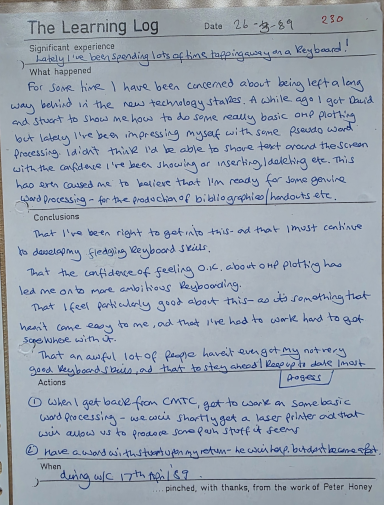 The Learning Log Date 26-3-89 230
Significant experience
Lately I've been spending lots of time tapping away on a Keyboard!
What happened
For some time I have been concerned about being left a long
way behind in the new technology stakes. A while ago I got David
and Stuart to show me how to do some really basic OHP plotting
but lately I've been impressing myself with some pseudo word
processing. I didn't think I'd be able to shove text around the screen
with the confidence I've been showing or inserting/deleting etc. This
has even caused me to believe that I'm ready for some genuine
word processing - for the production of bibliographies/handouts etc.
Conclusions
That I've been right to get into this - ad that I must continue
to developing fledgling Keyboard skills.
That the confidence of feeling O.K. about OHP plotting has
led me on to more ambitious Keyboarding.
That I feel particularly good about this - as its something that
hasn't come easy to me, ad that I've had to work hard to get
somewhere with it.
That an awful lot of people haven't even got my not very
good Keyboard skills, ad that to stay ahead/keep up to date I must
progress
Actions
① When I get back from CMTC, get to work on some basic
word processing - we will shortly get a laser printer ad that
will allow us to produce some posh stuff it seems
② Have a word with Stuart upon my return - he will help, but don't become a pest.
When
during w/c 17th April '89.
...pinched, with thanks, from the work of Peter Honey